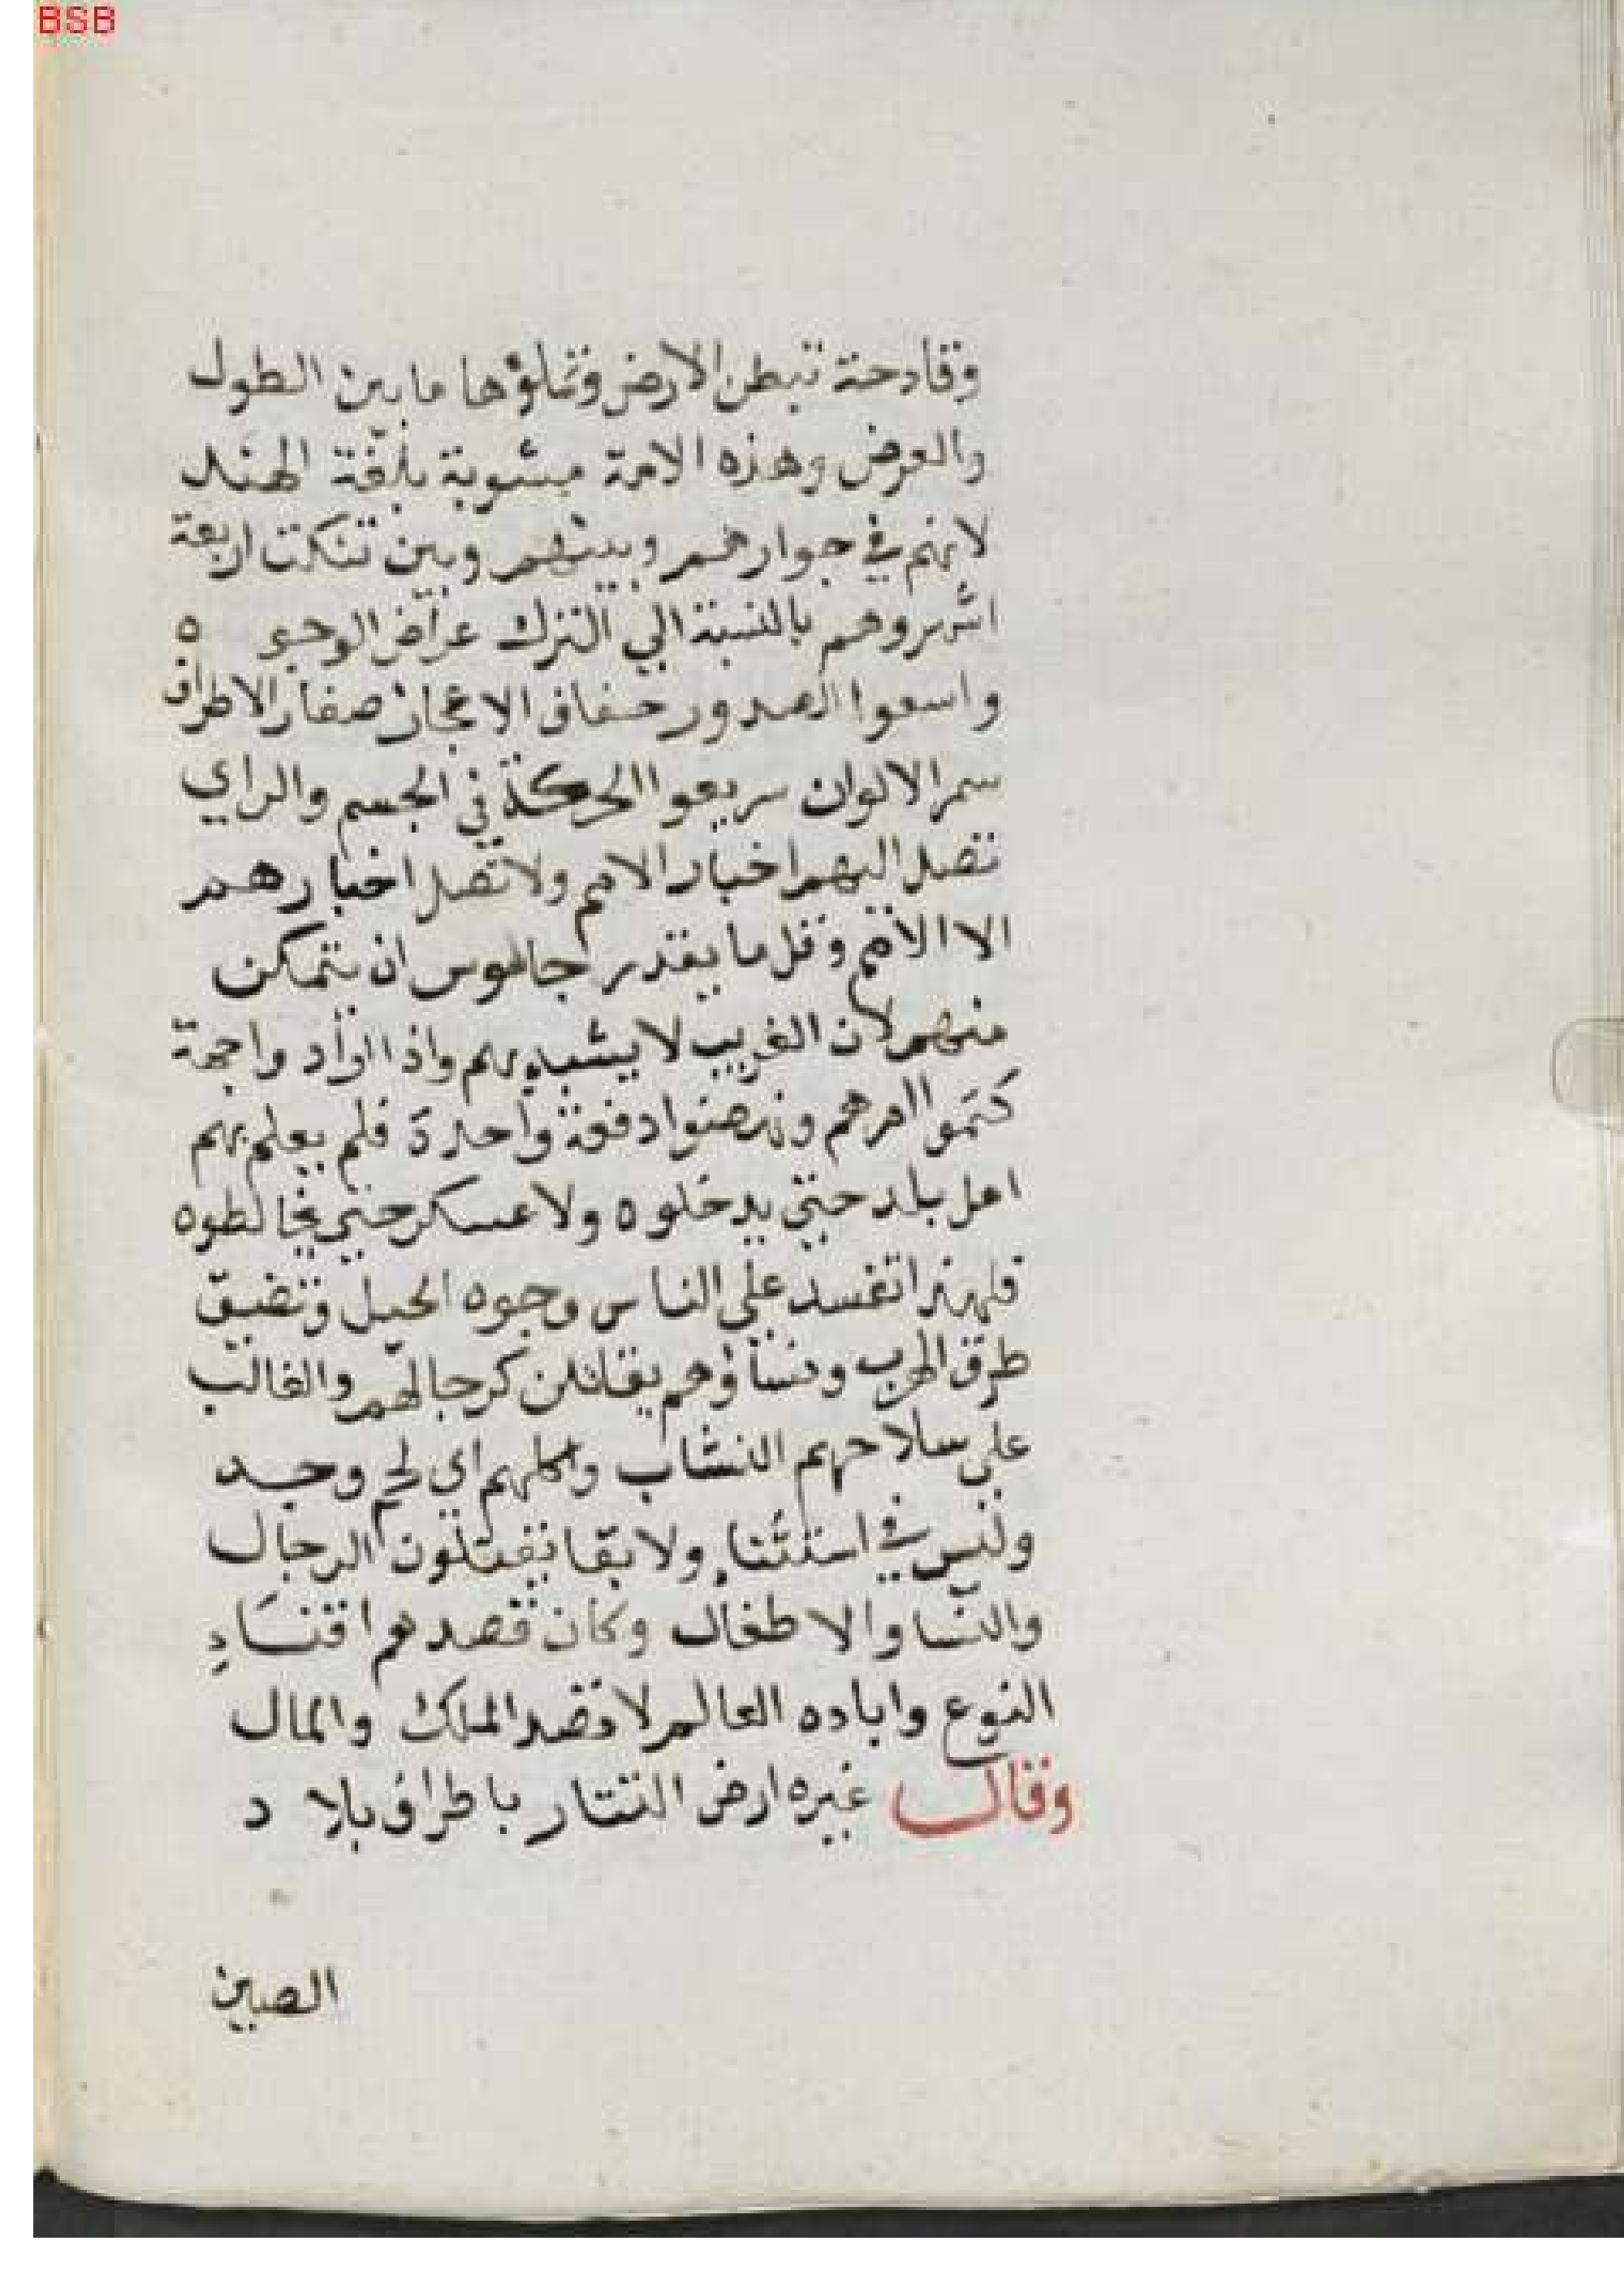 BSB
وقادحة تبطن الارض وتملؤها ما بين الطول
والعرض وهذه الامة مشوبة بلغة الهند
لانهم في جوارهم وبينهم وبين تنكت اربعة
اشهر وهم بالنسبة الي الترك عراض الوجوه
واسعوا الصدور خفاف الاعجاز صغار الاطراف
سمر الالوان سريعوا الحركة في الجسم والراي
تصل اليهم اخبار الامم ولا تصل اخبارهم
الا الامم وقل ما يقدر جاسوس ان يتمكن
منهم لان الغريب لا يشبه بهم واذا ارادوا جهة
كتموا امرهم ونهضوا دفعة واحدة فلم يعلم بهم
اهل بلد حتي يدخلوه ولا عسكر حتي يخالطوه
فلهذا تفسد علي الناس وجوه الحيل وتضيق
طرق الهرب ونساؤهم يقاتلن كرجالهم والغالب
علي سلاحهم النشاب واكلهم اي لحم وجد
وليس في استثنا ولا بقا يقتلون الرجال
والنسا والاطفال وكان قصدهم افناء
النوع واباده العالم لا قصد الملك والمال
وقال غيره ارض التتار باطراف بلاد
الصين